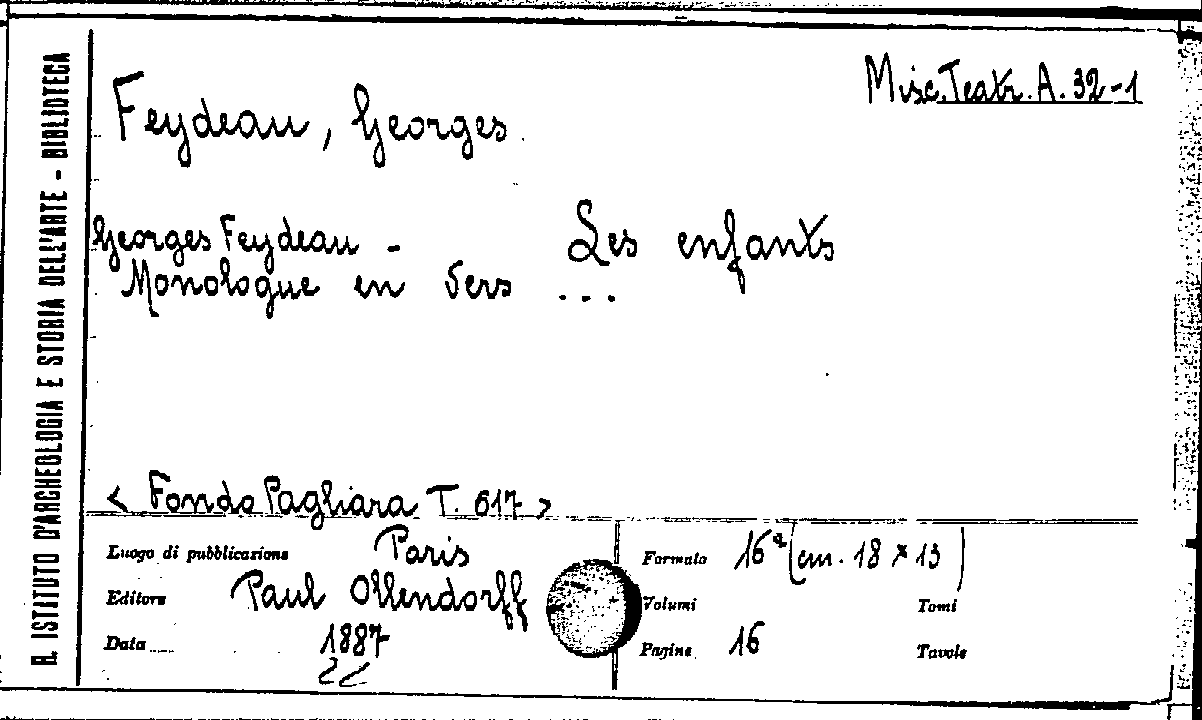 R. ISTITUTO D'ARCHEOLOGIA E STORIA DELL'ARTE - BIBLIOTECA
Misc. Teatr. A. 32-1
Feydeau, Georges
Georges Feydeau - Les enfants
Monologue en vers ...
< Fondo Pagliara T. 617 >
Luogo di pubblicazione Paris
Editore Paul Ollendorff
Data 1887
Formato 16° (cm. 18 x 13)
Volumi Tomi
Pagine 16 Tavole